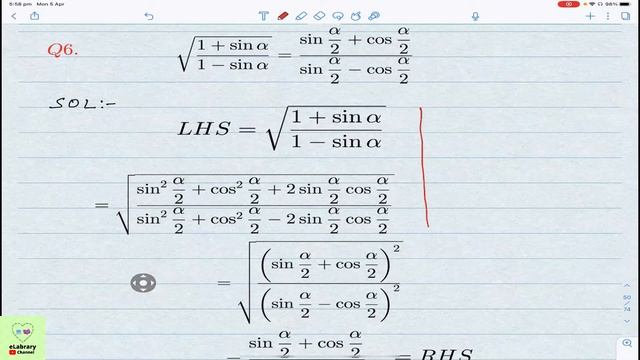 5:58 pm Mon 5 Apr
98%
Q6. √((1 + sin α)/(1 − sin α)) = (sin α/2 + cos α/2)/(sin α/2 − cos α/2)
SOL:-
LHS = √((1 + sin α)/(1 − sin α))
= √((sin² α/2 + cos² α/2 + 2 sin α/2 cos α/2)/(sin² α/2 + cos² α/2 − 2 sin α/2 cos α/2))
= √((sin α/2 + cos α/2)²/(sin α/2 − cos α/2)²)
sin α/2 + cos α/2
= RHS
50
74
eLabrary
Channel